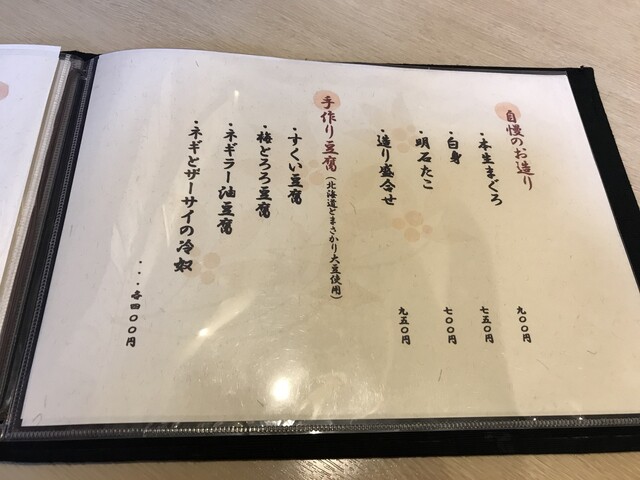 自慢のお造り
・本生まぐろ 九〇〇円
・白身 七五〇円
・明石たこ 七〇〇円
・造り盛合せ 九五〇円
手作り豆腐(北海道とまさかり大豆使用)
・すくい豆腐
・梅とろろ豆腐
・ネギラー油豆腐
・ネギとザーサイの冷奴
・・・各四〇〇円